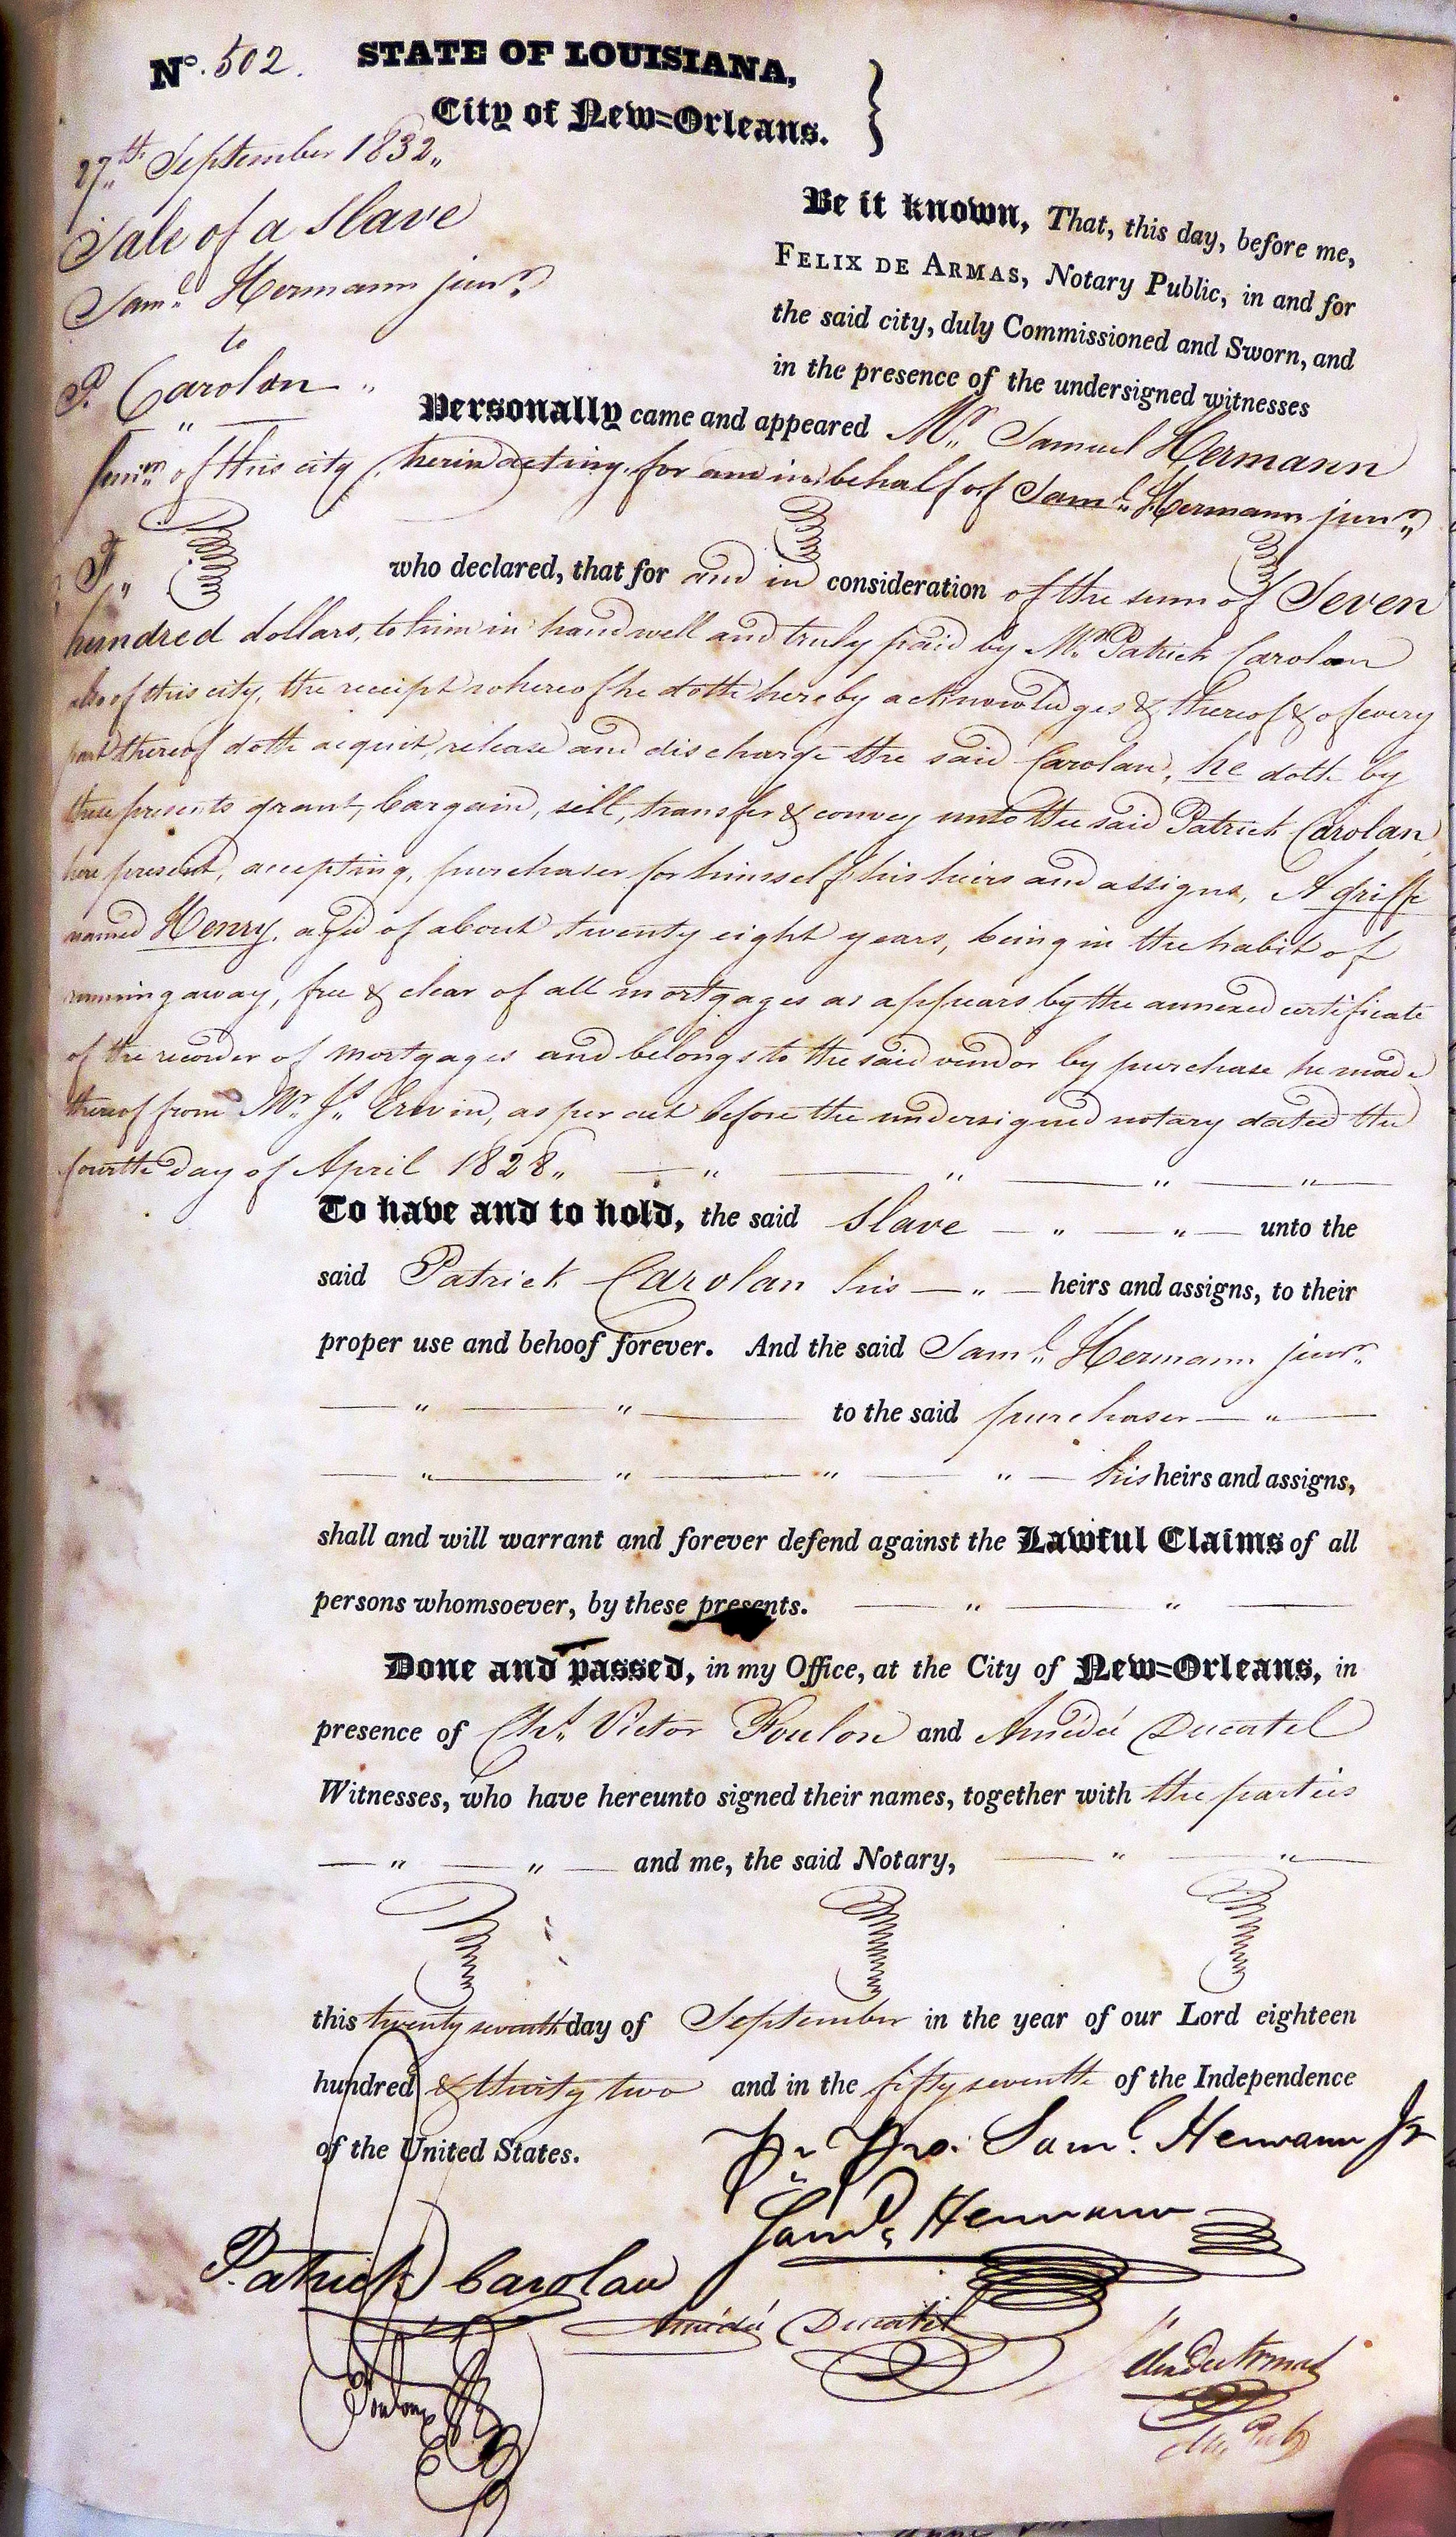 No. 502. STATE OF LOUISIANA,
City of New=Orleans.
27th September 1832
Sale of a Slave
Saml Hermann junr
to
P. Carolan
Be it known, That, this day, before me,
FELIX DE ARMAS, Notary Public, in and for
the said city, duly Commissioned and Sworn, and
in the presence of the undersigned witnesses
Personally came and appeared Mr Samuel Hermann
of this city, herin acting for and in behalf of Saml Hermann junr
F.
who declared, that for and in consideration of the sum of Seven
hundred dollars, to him in hand well and truly paid by Mr Patrick Carolan
also of this city, the receipt whereof he doth hereby acknowledges & thereof & of every
part thereof doth acquit, release and discharge the said Carolan, he doth by
these presents grant, bargain, sell, transfer & convey unto the said Patrick Carolan
here present, accepting, purchaser for himself his heirs and assigns, A griffe
named Henry, aged of about twenty eight years, being in the habit of
running away, free & clear of all mortgages as appears by the annexed certificate
of the recorder of mortgages and belongs to the said vendor by purchase he made
thereof from Mr Js Erwin, as per act before the undersigned notary dated the
fourth day of April 1828
To have and to hold, the said Slave unto the
said Patrick Carolan his heirs and assigns, to their
proper use and behoof forever. And the said Saml Hermann junr
to the said purchaser
his heirs and assigns,
shall and will warrant and forever defend against the Lawful Claims of all
persons whomsoever, by these presents.
Done and passed, in my Office, at the City of New=Orleans, in
presence of Chs Victor Foulon and Amédée Ducatel
Witnesses, who have hereunto signed their names, together with the parties
and me, the said Notary,
this twenty seventh day of September in the year of our Lord eighteen
hundred & thirty two and in the fifty seventh of the Independence
of the United States.
Pr Pro. Saml Hermann Jr
Saml Hermann
Patrick Carolan
Amédée Ducatel
Foulon